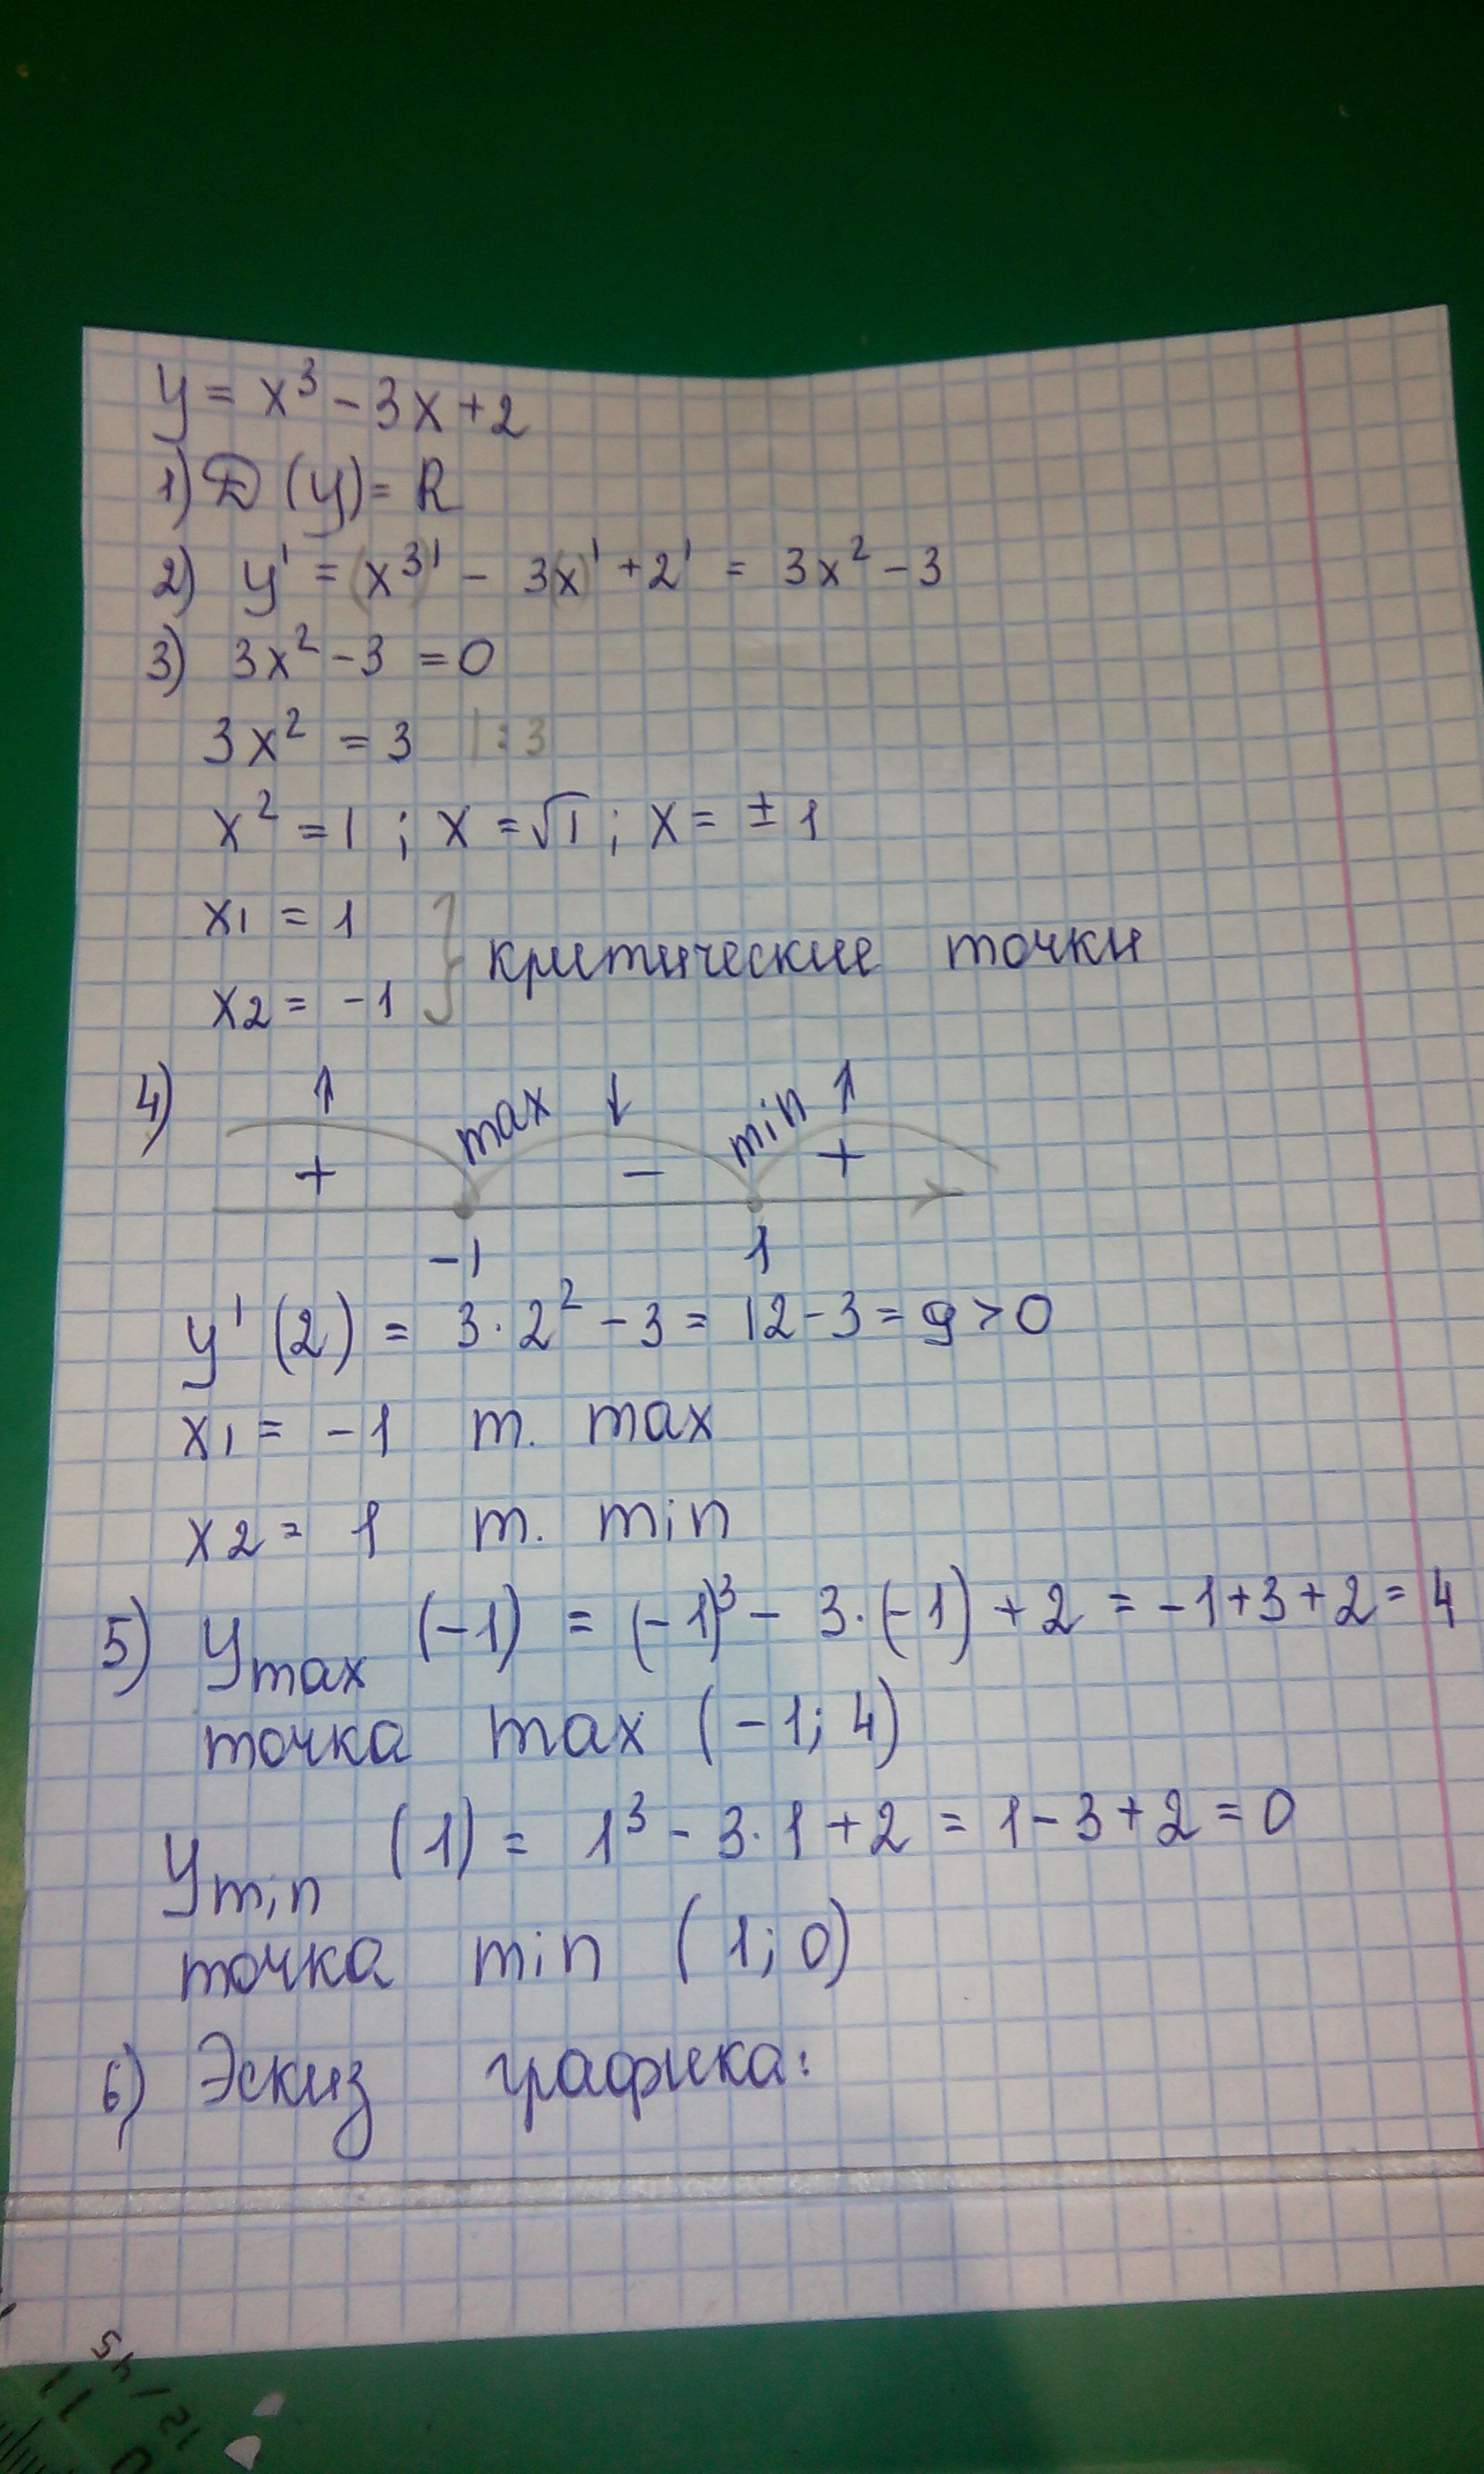 y = x³ - 3x + 2
1) D (y) = R
2) y' = (x³)' - 3(x)' + 2' = 3x² - 3
3) 3x² - 3 = 0
3x² = 3 | : 3
x² = 1 ; x = √1 ; x = ± 1
x1 = 1
x2 = -1 } критические точки
4) ↑ max ↓ min ↑
+ - +
-1 1
y' (2) = 3·2² - 3 = 12 - 3 = 9 > 0
x1 = -1 т. max
x2 = 1 т. min
5) y max (-1) = (-1)³ - 3·(-1) + 2 = -1 + 3 + 2 = 4
точка max (-1; 4)
y min (1) = 1³ - 3·1 + 2 = 1 - 3 + 2 = 0
точка min (1; 0)
6) Эскиз графика: